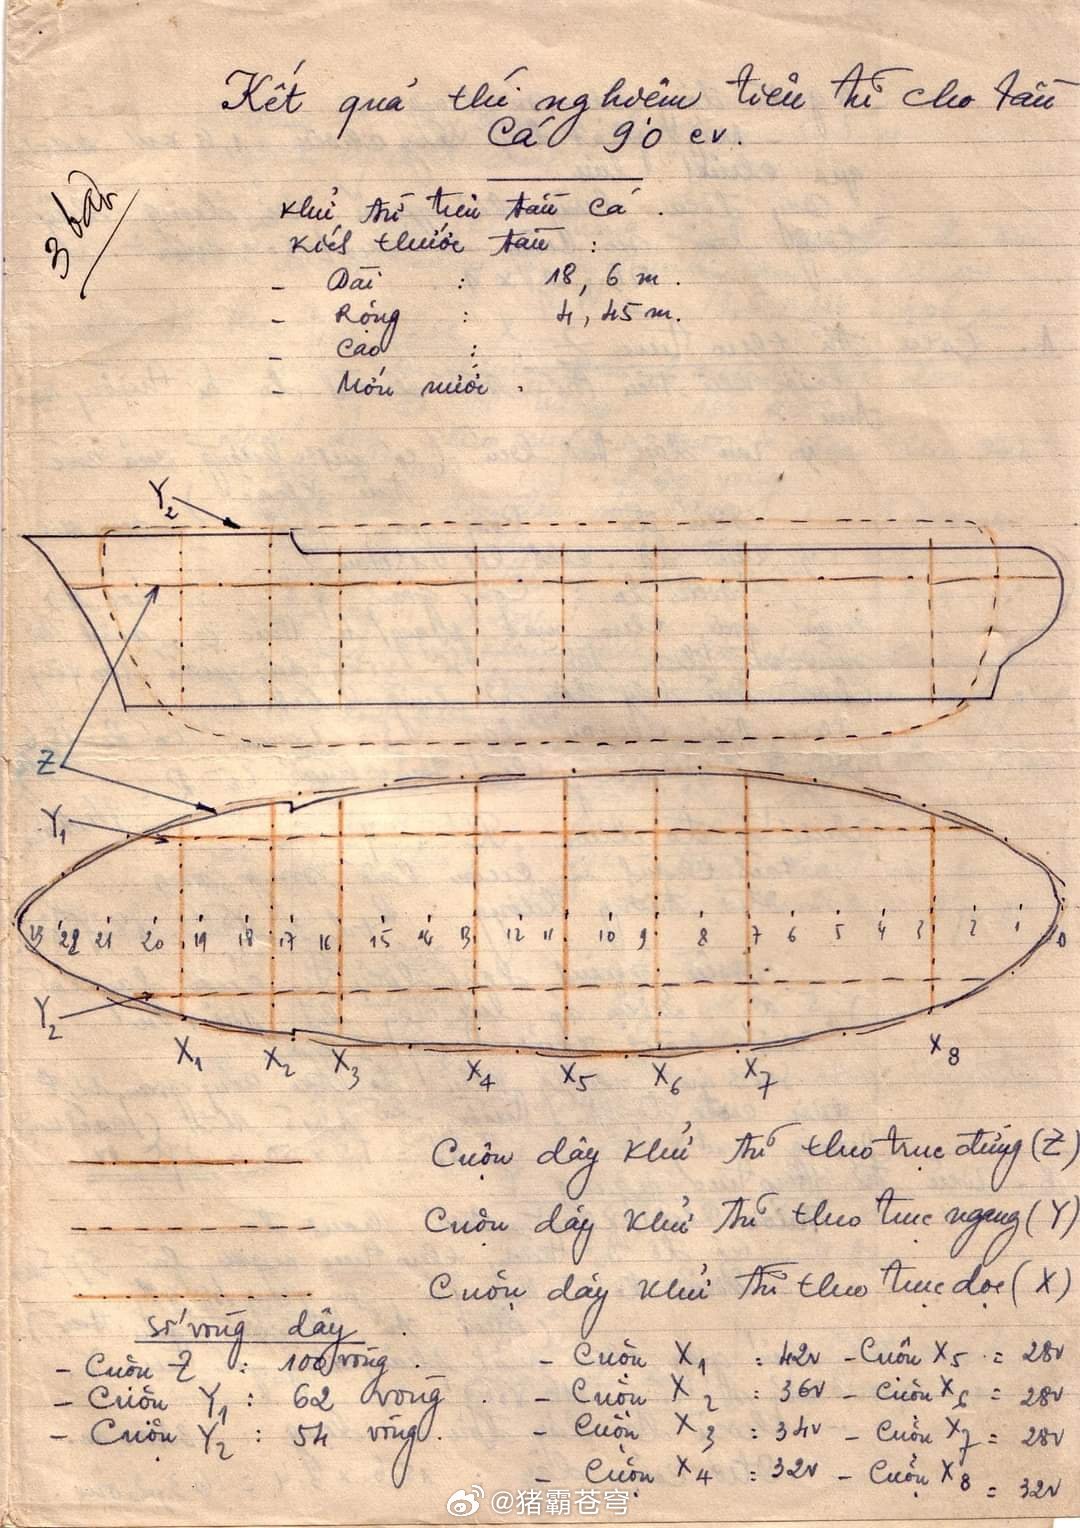 Kết quả thí nghiệm tiêu từ cho tàu
Cá 90 cv.
3 bản
Khử từ trên tàu Cá.
Kích thước tàu :
- Dài : 18,6 m.
- Rộng : 4,45 m.
- Cao :
- Mớn nước .
Y₂
Z
Y₁
22 21 20 19 18 17 16 15 14 13 12 11 10 9 8 7 6 5 4 3 2 1 0
Y₂
X₁ X₂ X₃ X₄ X₅ X₆ X₇ X₈
Cuộn dây khử từ theo trục đứng (Z)
Cuộn dây khử từ theo trục ngang (Y)
Cuộn dây khử từ theo trục dọc (X)
Số vòng dây
- Cuộn Z : 100 vòng . - Cuộn X₁ : 42v - Cuộn X₅ = 28v
- Cuộn Y₁ : 62 vòng - Cuộn X₂ : 36v - Cuộn X₆ = 28v
- Cuộn Y₂ : 54 vòng. - Cuộn X₃ : 34v - Cuộn X₇ = 28v
- Cuộn X₄ : 32v - Cuộn X₈ = 32v
@猪霸苍穹